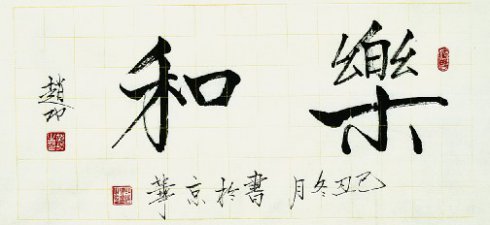 樂和
己丑冬月書於京華
趙印